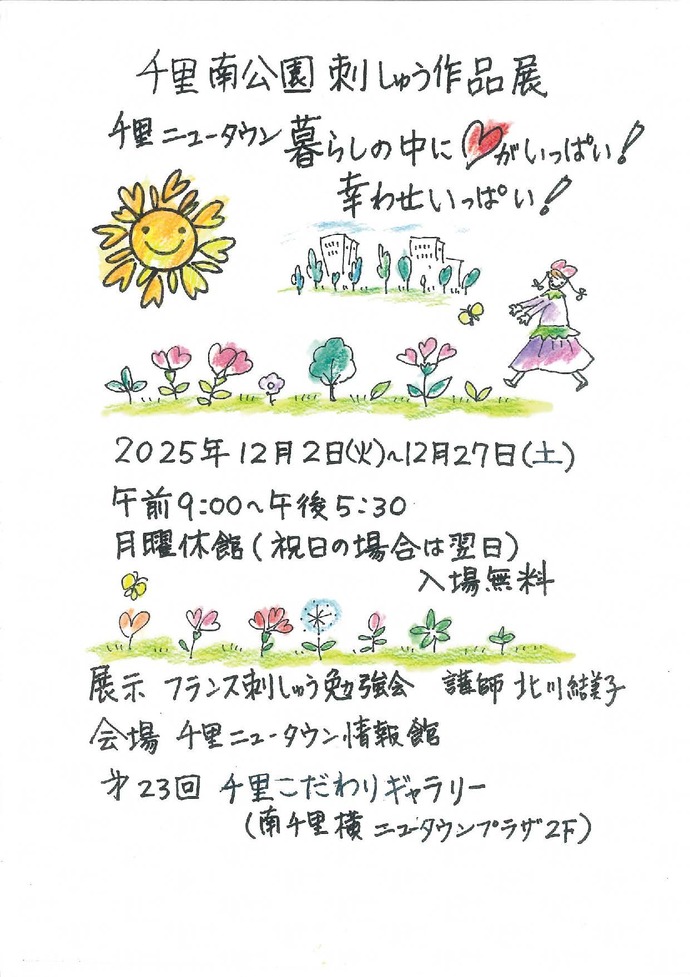 千里南公園 刺しゅう作品展
千里ニュータウン 暮らしの中に♡がいっぱい!
幸わせいっぱい!
2025年12月2日(火)~12月27日(土)
午前9:00~午後5:30
月曜休館(祝日の場合は翌日)
入場無料
展示 フランス刺しゅう勉強会 講師 北川結美子
会場 千里ニュータウン情報館
才23回 千里こだわりギャラリー
(南千里横 ニュータウンプラザ2F)